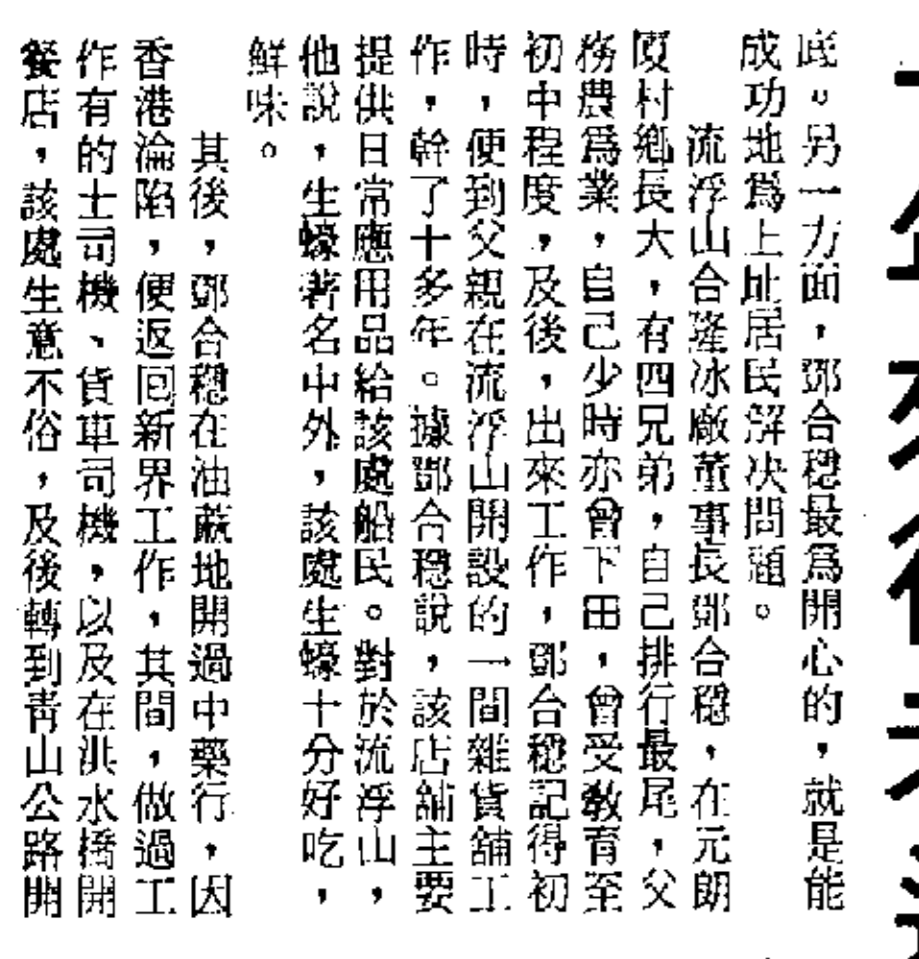 底。另一方面，鄧合穩最爲開心的，就是能
成功地爲上址居民解决問題。
流浮山合隆冰廠董事長鄧合穩，在元朗
厦村鄉長大，有四兄弟，自己排行最尾，父
務農爲業，自己少時亦曾下田，曾受敎育至
初中程度，及後，出來工作，鄧合穩記得初
時，便到父親在流浮山開設的一間雜貨舖工
作，幹了十多年。據鄧合穩說，該店舖主要
提供日常應用品給該處船民。對於流浮山，
他說，生蠔著名中外，該處生蠔十分好吃，
鮮味。
其後，鄧合穩在油蔴地開過中藥行，因
香港淪陷，便返回新界工作，其間，做過工
作有的士司機、貨車司機，以及在洪水橋開
餐店，該處生意不俗，及後轉到靑山公路開